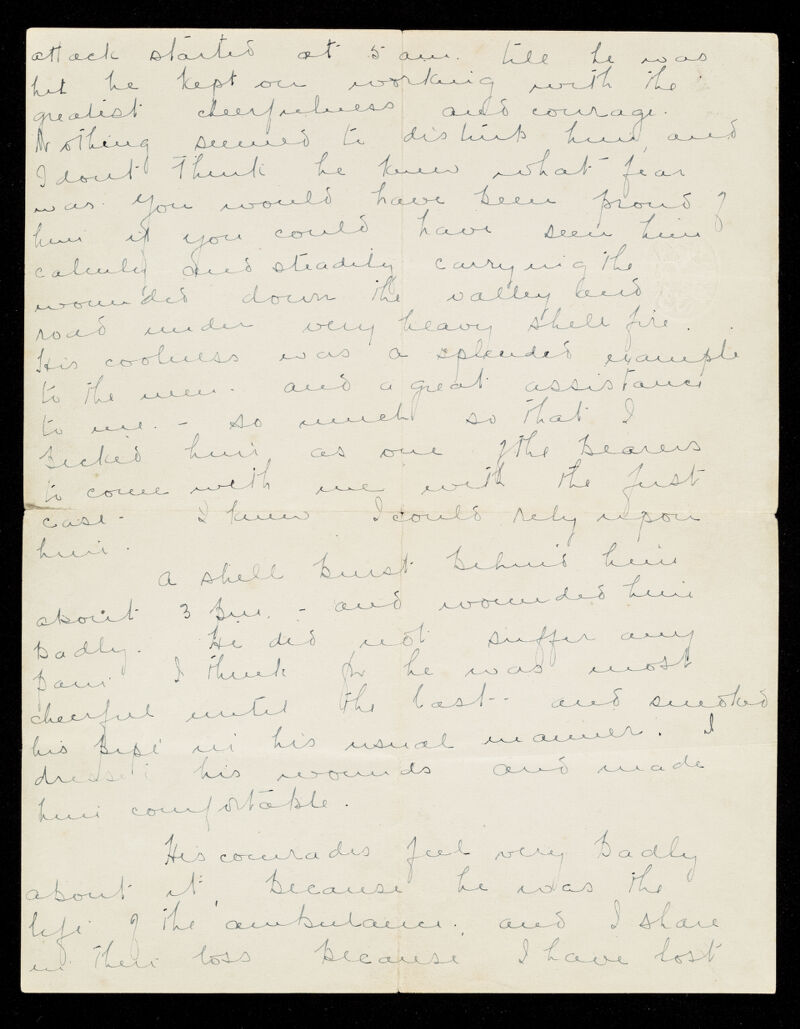 attack started at 5 am. till he was
hit he kept on working with the
greatest cheerfulness and courage.
Nothing seemed to disturb him, and
I dont think he knew what fear
was. You would have been proud of
him if you could have seen him
calmly and steadily carrying the
wounded down the valley and
road under very heavy shell fire.
His coolness was a splended example
to the men. and a great assistance
to me. - so much so that I
picked him as one of the bearers
to come with me with the first
case - I knew I could rely upon
him.
A shell burst behind him
about 3 p.m. - and wounded him
badly. He did not suffer any
pain I think for he was most
cheerful until the last - and smoked
his pipe in his usual manner. I
dressed his wounds and made
him comfortable.
His comrades feel very badly
about it, because he was the
life of the ambulance, and I share
in their loss because I have lost